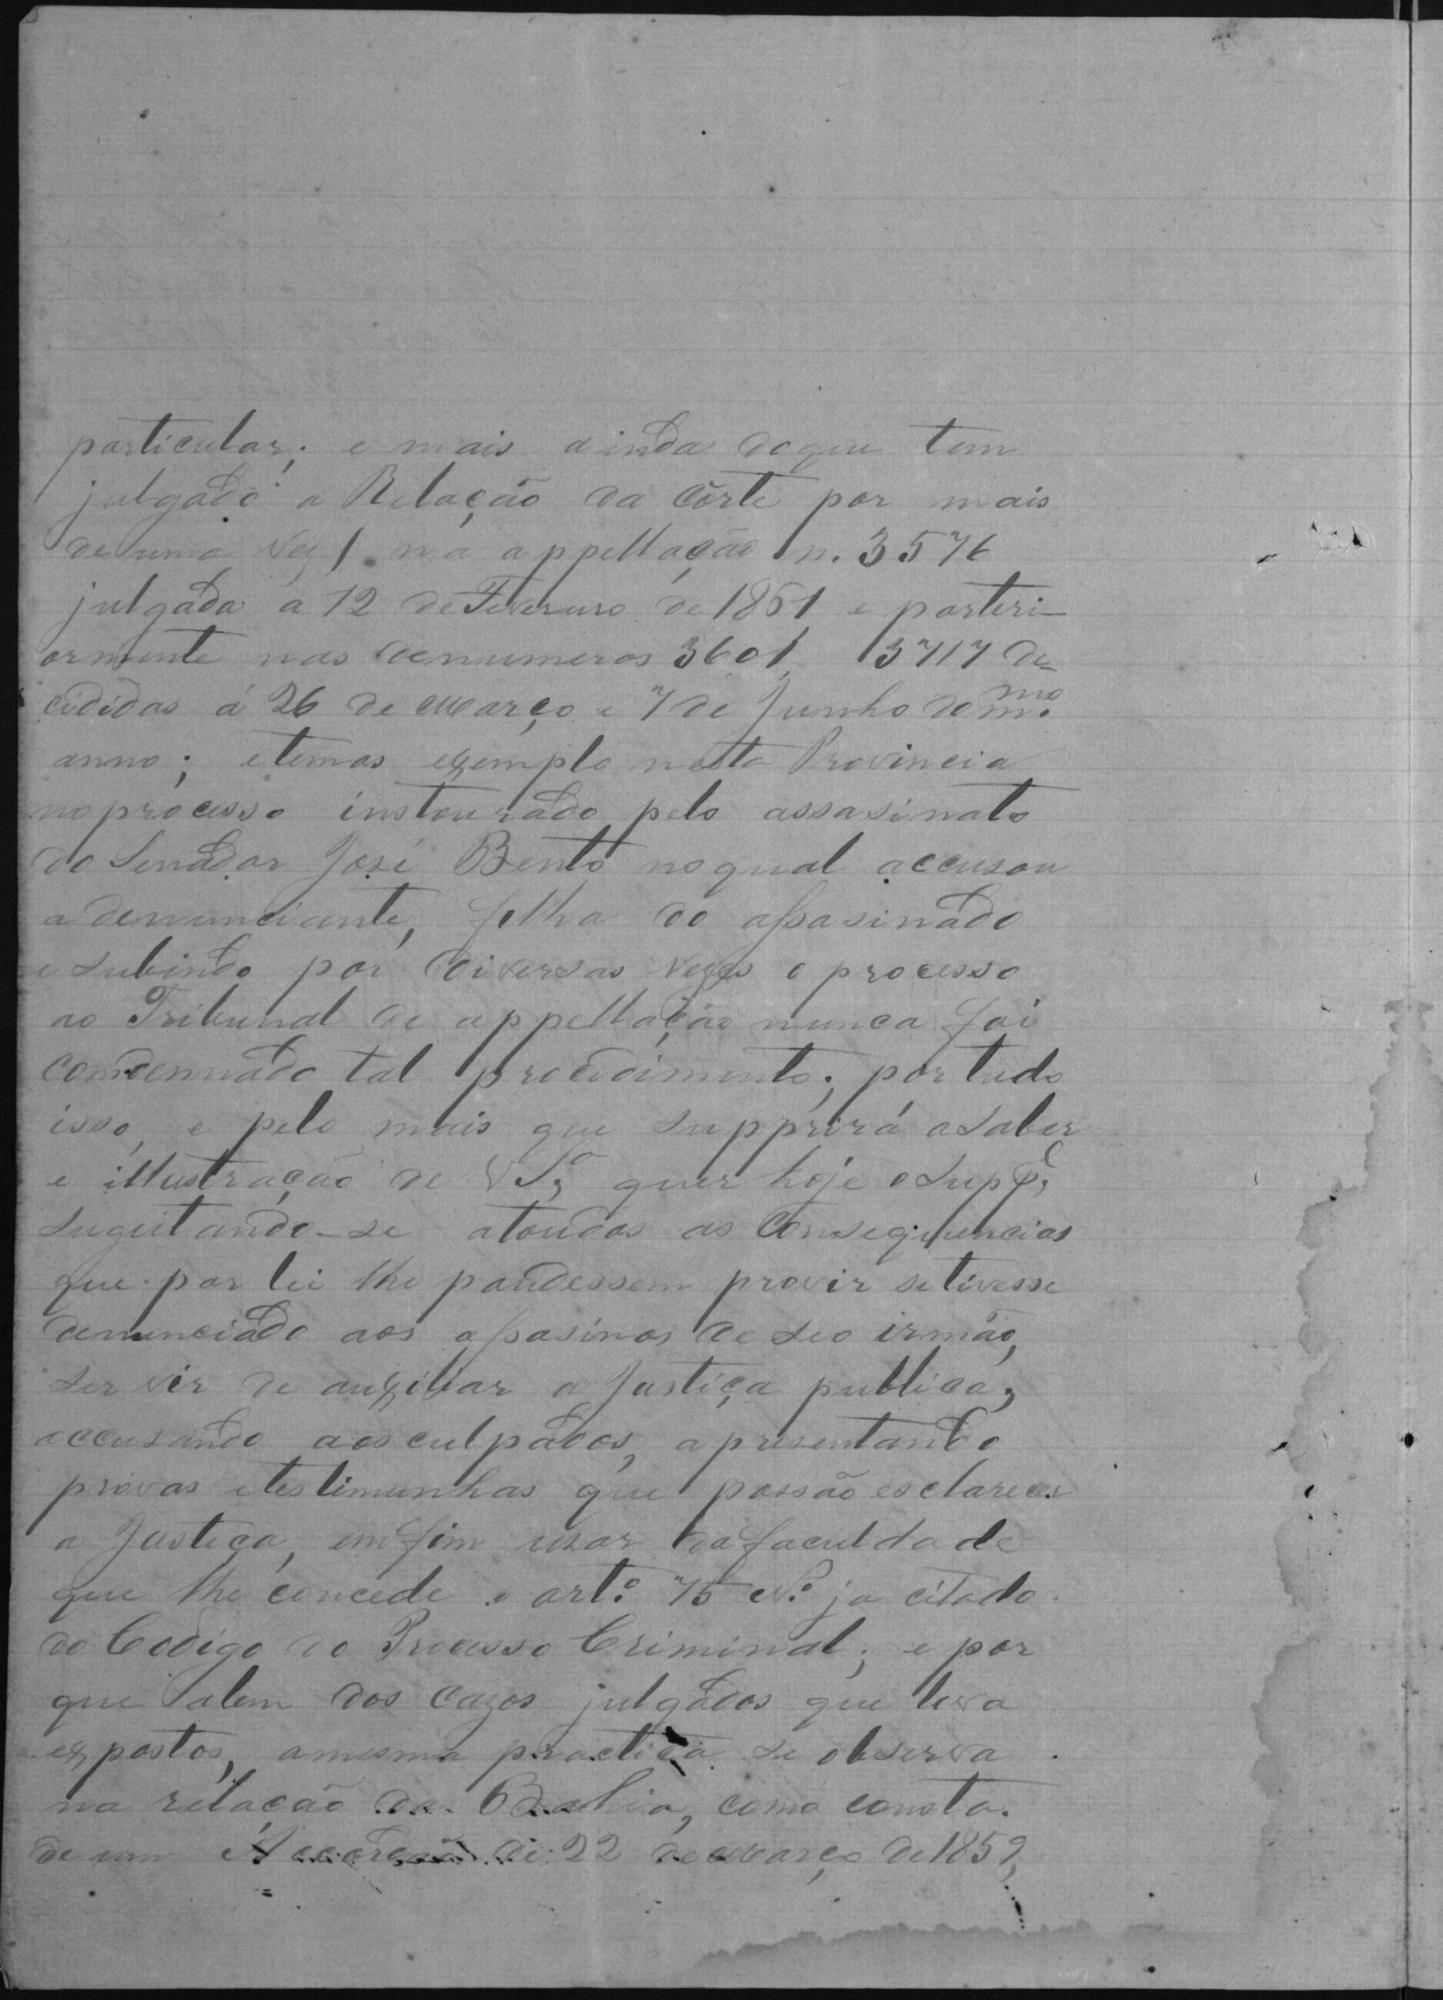 particular; e mais ainda doque tem
julgado a Relação da Côrte por mais
de uma vez, na appellação n. 3576
julgada a 12 de Fevereiro de 1861 e posteri-
ormente nas denumeros 3601, 3717 de-
cididas á 26 de Março e 7 de Junho do mmo.
anno; etemos exemplo nesta Provincia
noprocesso instourado pelo assasinato
do Senador José Bento noqual accusou
a denunciante, filha do assasinado
e subindo por diversas vezes o processo
ao Tribunal de appellação nunca foi
condennado tal procedimento; portudo
isso, e pelo mais que supprirá osaber
e illustração de VSa, quer hoje o Suppe,
sugeitando-se atoudos as consequencias
que por lei lhe poudessem provir setivesse
denunciado aos assasinos de seo irmão,
servir de auxiliar a Justiça publica,
accusando aosculpados, apresentando
provas etestimunhas que possão esclarecer
a Justiça, emfim usar dafaculdade
que lhe concede o arto. 75 No. ja citado
do Codigo do Processo Criminal; e por
que alem dos cazos julgados que leva
expostos, amesma practica se observa
na relação da Bahia, como consta
de um Accordão de 22 de Março de 1859,